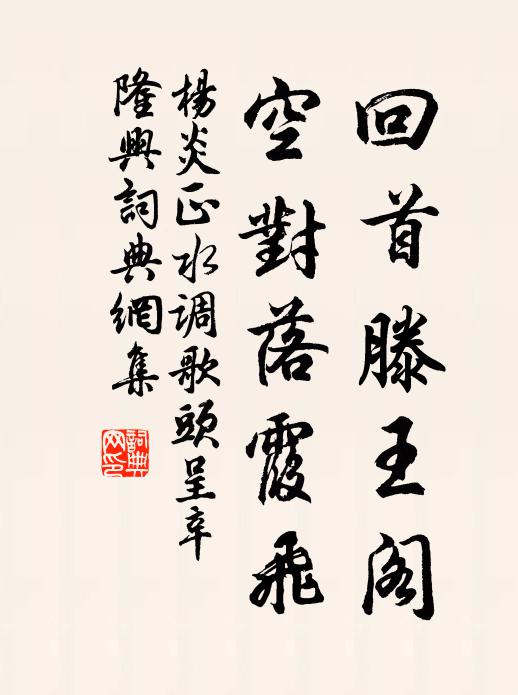 回首滕王阁
空對落霞飛
楊炎正水调歌頭呈辛
隆興詞典網集
詞典网印